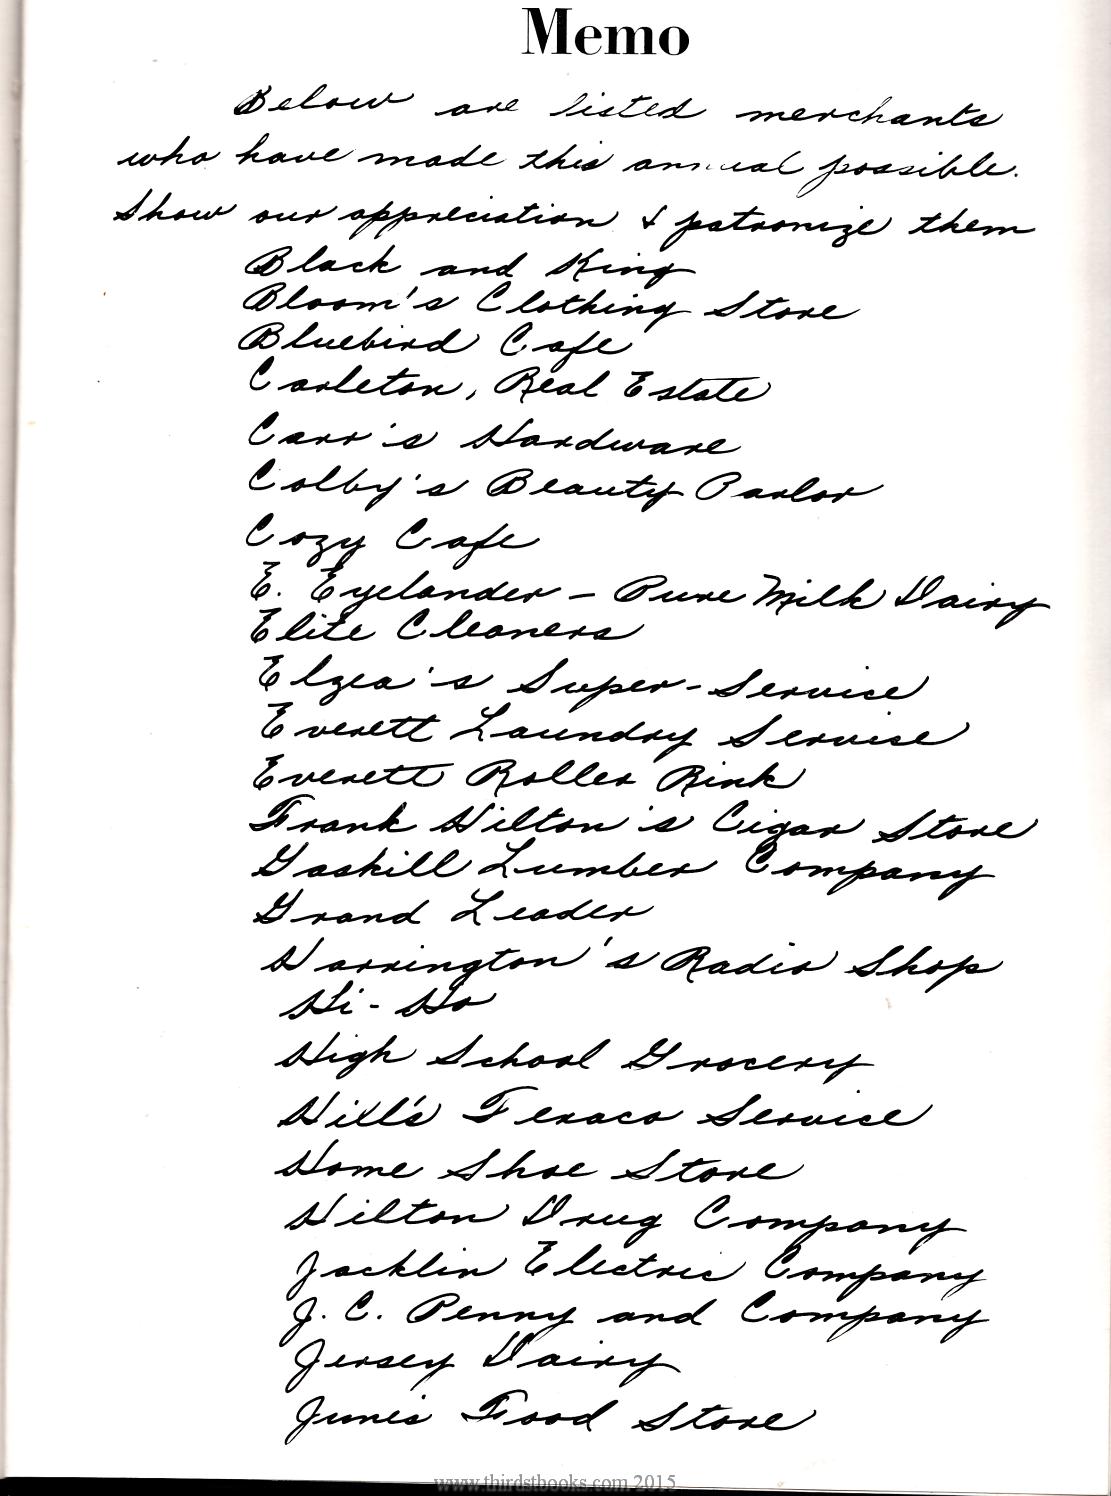 Memo
Below are listed merchants
who have made this annual possible.
Show our appreciation & patronize them
Black and King
Bloom's Clothing Store
Bluebird Cafe
Carleton, Real Estate
Carr's Hardware
Colby's Beauty Parlor
Cozy Cafe
E. Eyelander - Pure Milk Dairy
Elite Cleaners
Elzea's Super-Service
Everett Laundry Service
Everett Roller Rink
Frank Hilton's Cigar Store
Gaskill Lumber Company
Grand Leader
Harrington's Radio Shop
Hi-Ho
High School Grocery
Hill's Texaco Service
Home Shoe Store
Hilton Drug Company
Jacklin Electric Company
J. C. Penny and Company
Jersey Dairy
June's Food Store
www.thirdstbooks.com 2015